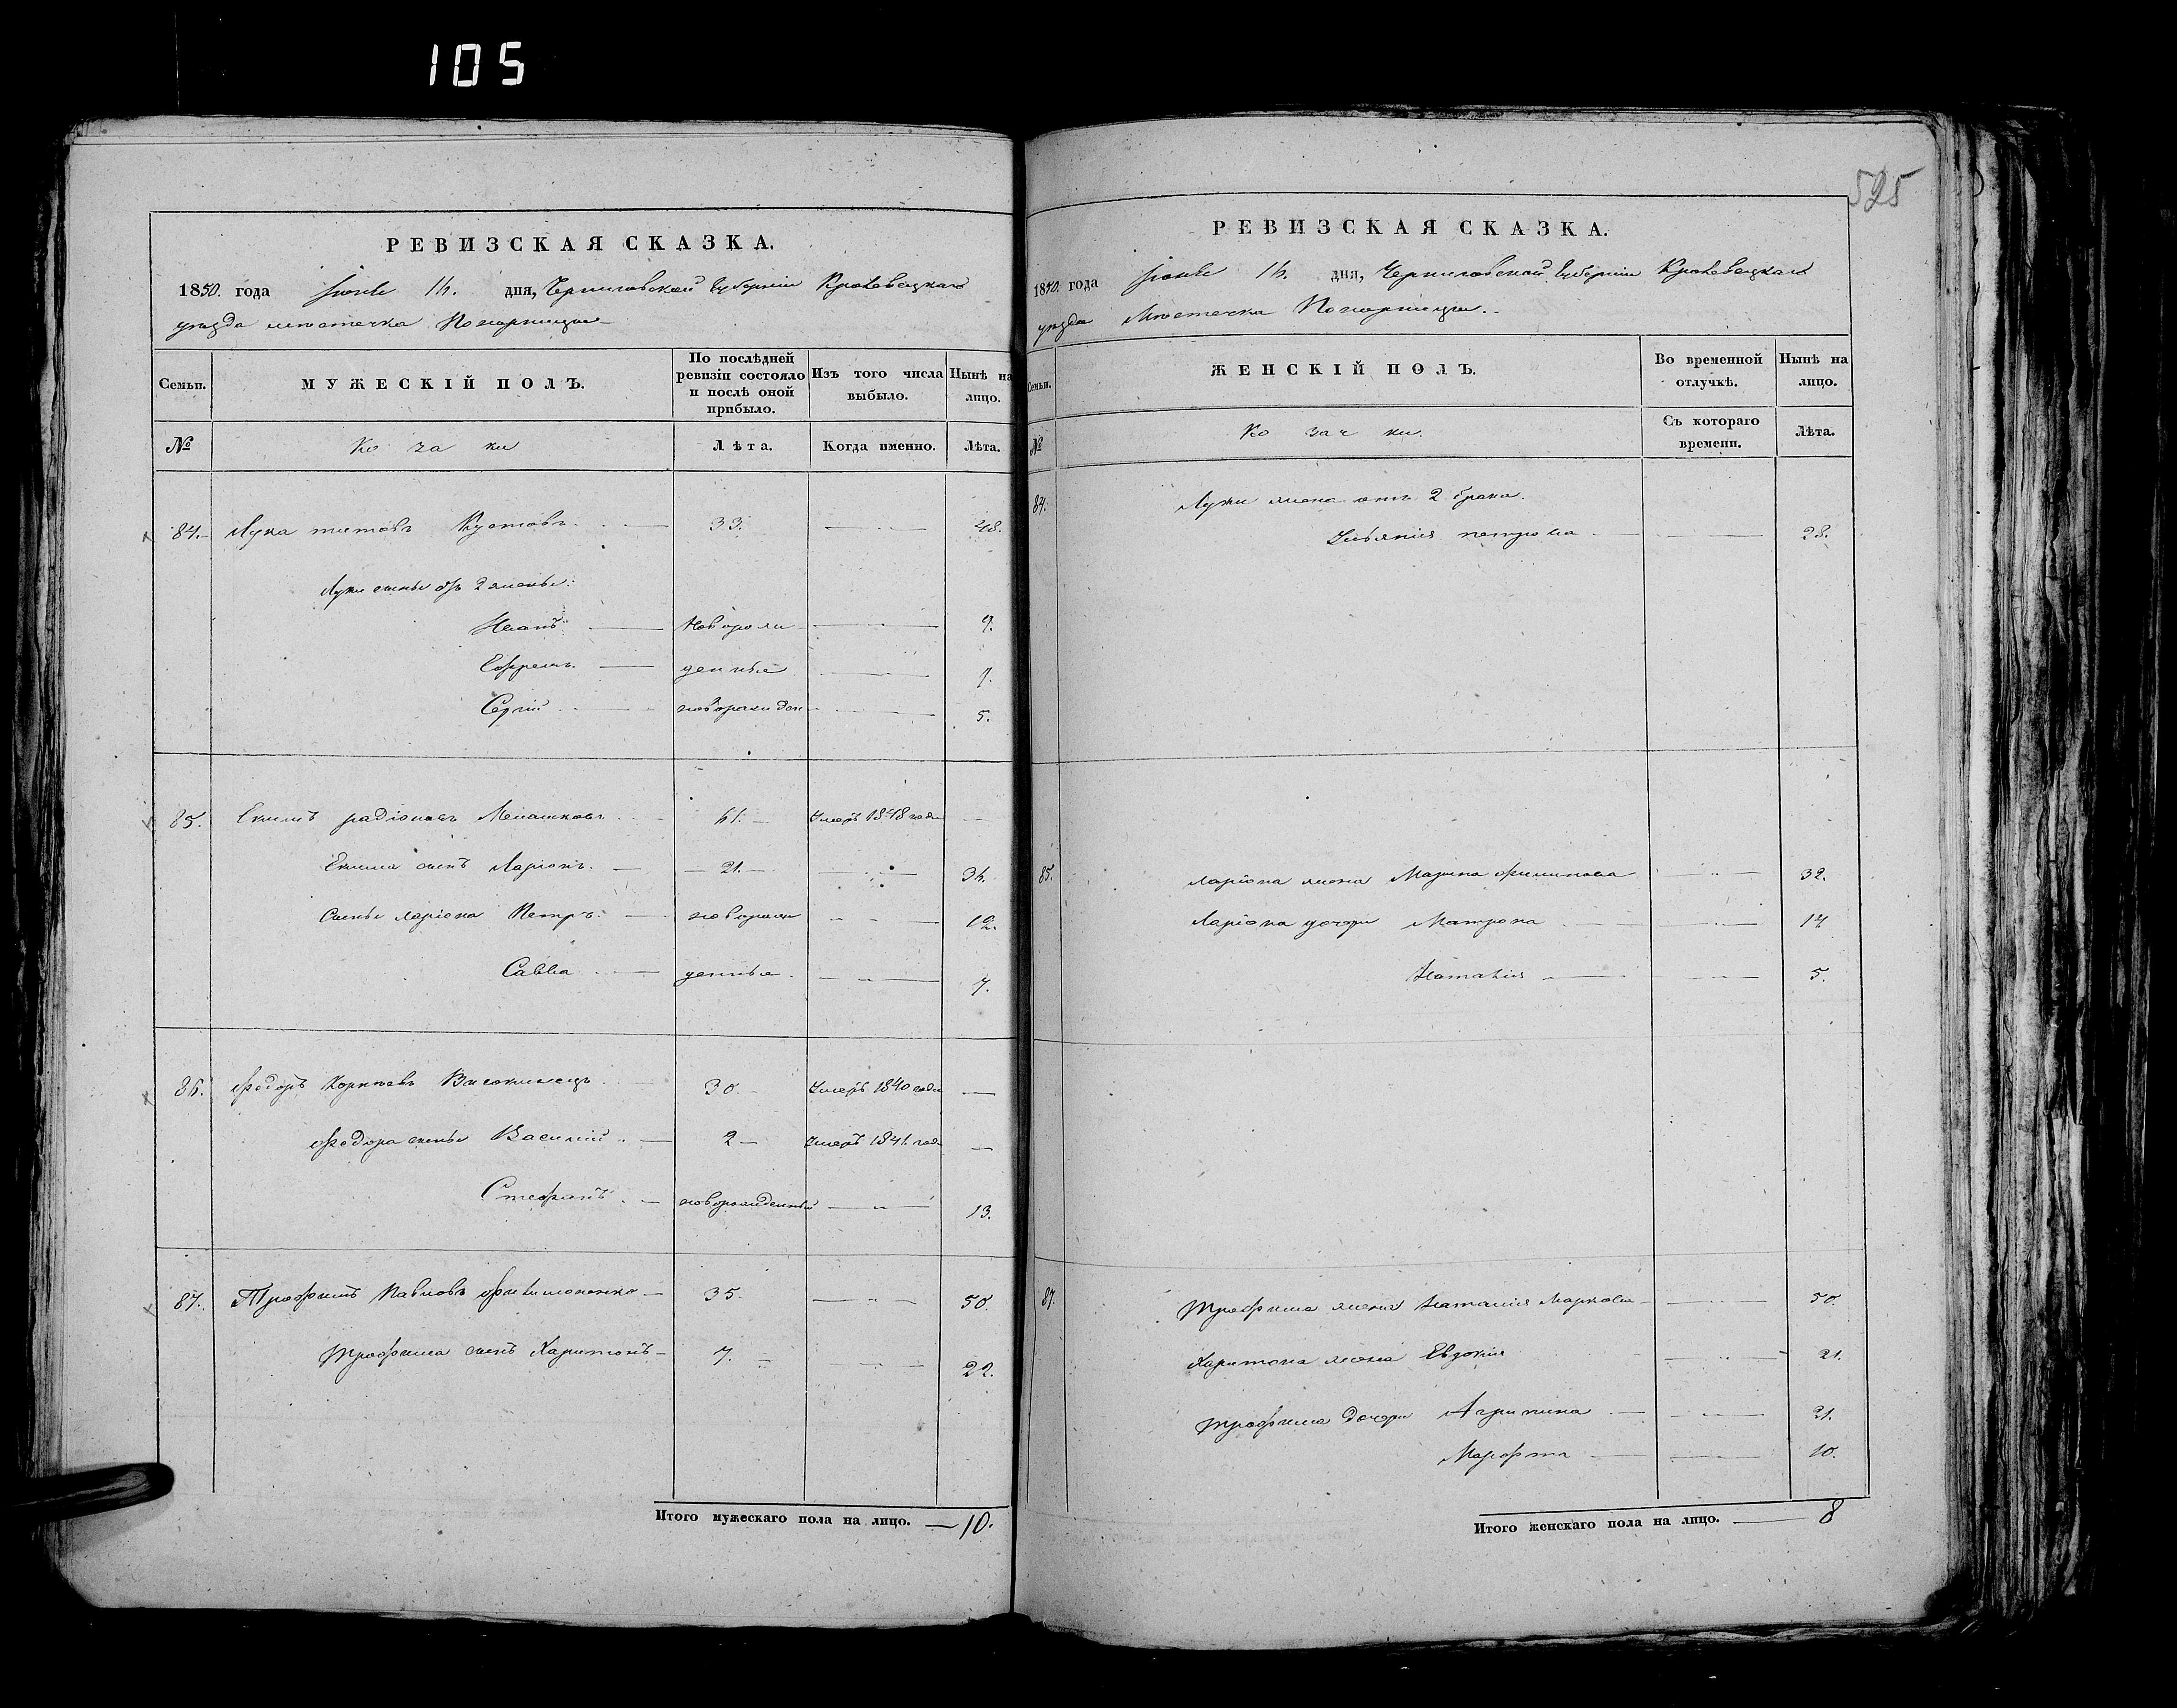 105
525
РЕВИЗСКАЯ СКАЗКА.
1850. года Іюня дня, Черниговской Губерніи Кролевецкаго
уезда местечка Понорницы
Семьи. МУЖЕСКІЙ ПОЛЪ. По послѣдней ревизіи состояло и послѣ оной прибыло. Изъ того числа выбыло. Нынѣ на лицо.
№ Козаки Лѣта. Когда именно. Лѣта.
84. Лука титовъ 33. 48.
Луки сыны отъ 2 жены:
Иванъ новорож 9.
Ефремъ денные 7.
Сергій новорожден 5.
85. Екимъ радіоновъ Умеръ 1848 года
Екима сынъ Ларіонъ. 21.
Сыны ларіона Петръ. новорож 12.
Савва денные. 7.
86. Федоръ Корнѣевъ 30 Умеръ 1840 года
Федора сыны Василій 2 Умеръ 1841 года
Стефанъ новорожденный 13.
87. Трофимъ Павловъ Филимоненко 35. 50.
Трофима сынъ Харитонъ 7. 22.
Итого мужескаго пола на лицо. 10.
РЕВИЗСКАЯ СКАЗКА.
1850. года Іюня дня, Черниговской Губерніи Кролевецкаго
уезда Местечка Понорницы.
Семьи. ЖЕНСКІЙ ПОЛЪ. Во временной отлучкѣ. Нынѣ на лицо.
№ Козачки. Съ котораго времени. Лѣта.
84. Луки жена отъ 2 брака.
Ульянія петрова 28.
85. Ларіона жена Марина филипова 32.
Ларіона дочери Матрона
Наталія 5.
87. Трофима жена Наталія Маркова 50.
Харитона жена Евдокія 21.
Трофима дочери Агрипина 21.
Марфта 10.
Итого женскаго пола на лицо. 8